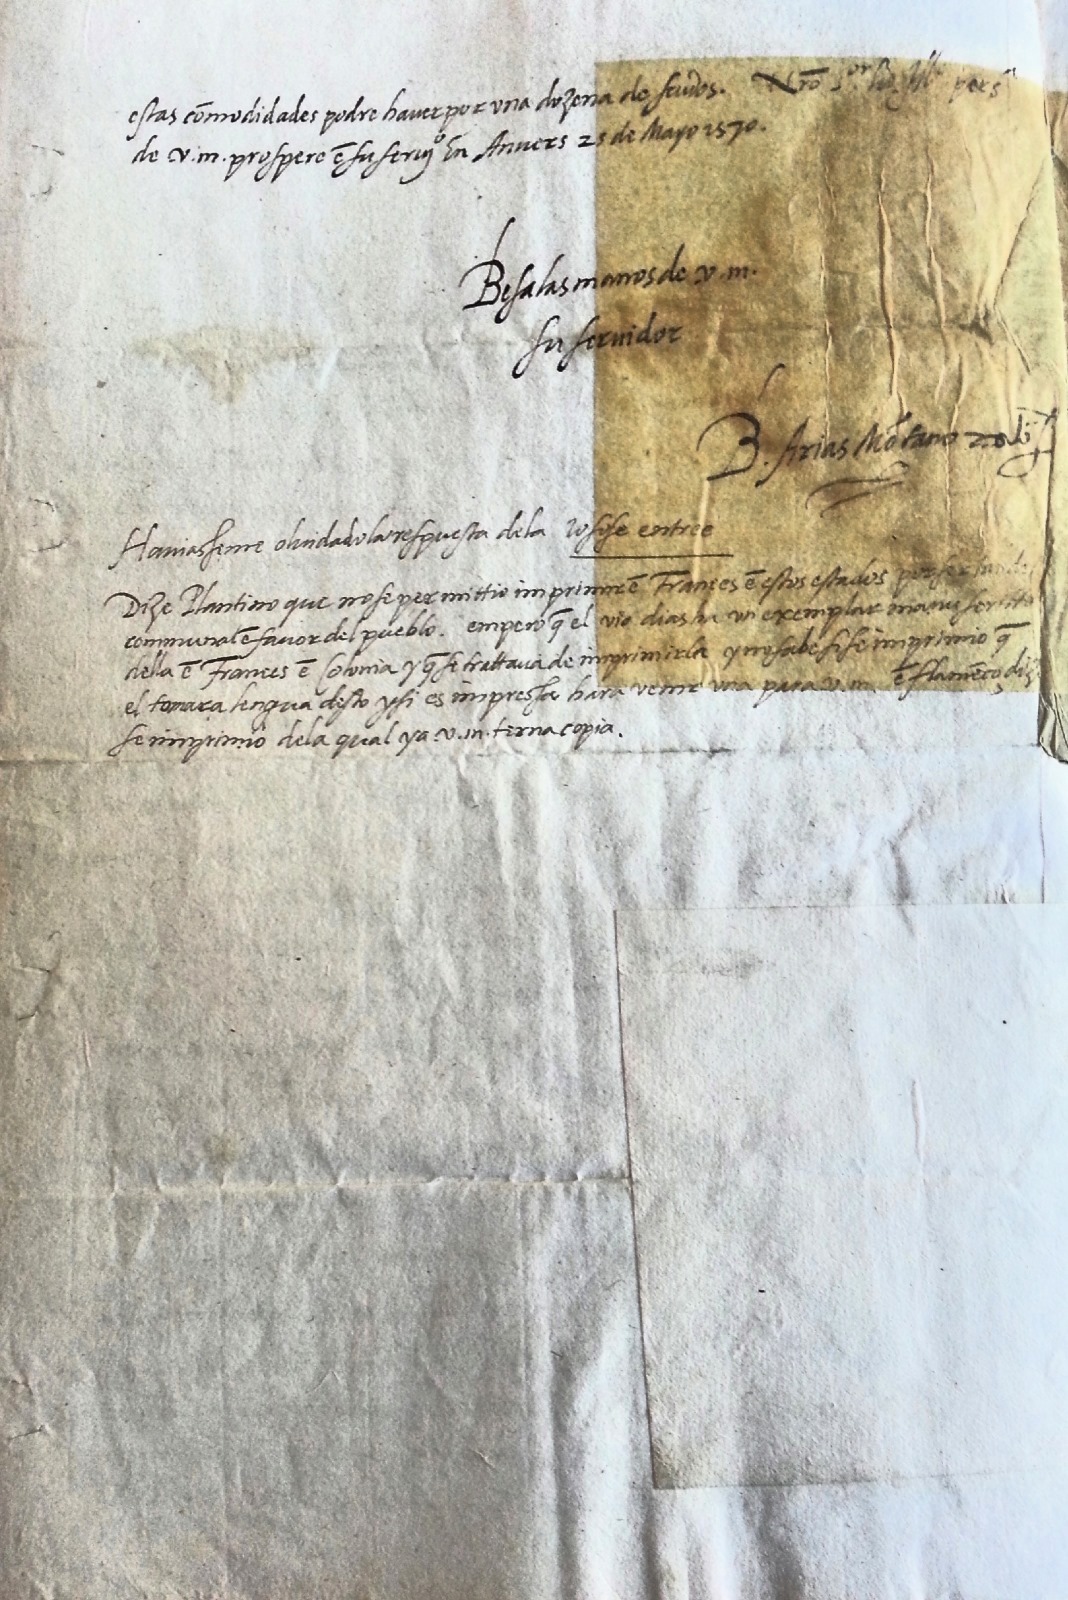 estas cōmodidades podre haver por vna dozena de scudos. Nrō s.ᵒʳ la Ill.ᵉ pers.ª
de v.m. prospere ē su serui.º En Anuers 25 de Mayo 1570.
Besa las manos de v.m.
su seruidor
B. Arias Mōtano
Hauiasseme oluidado la respuesta de la Iosise entree
Dize Plantino que no se permittio imprimir ē Frances ē estos estados por ser
communal ē fauor del pueblo. empero q̄ el vio dias ha vn exemplar manuscritto
della ē Frances ē Colonia y q̄ se trattaua de imprimirla y no sabe si se imprimio q̄
el tomara lengua desto y si es impressa hara venir vna para v.m. ē flamēco diz
se imprimio de la qual ya v.m. terna copia.